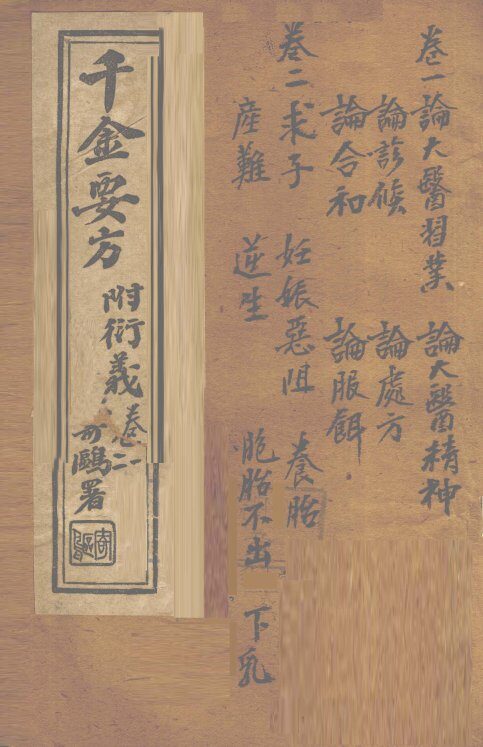 卷一論大醫習業 論大醫精神
論診候 論處方
論合和 論服餌
卷二求子 妊娠惡阻 養胎
產難 逆生 胞胎不出 下乳
千金要方
附衍義 卷二
署